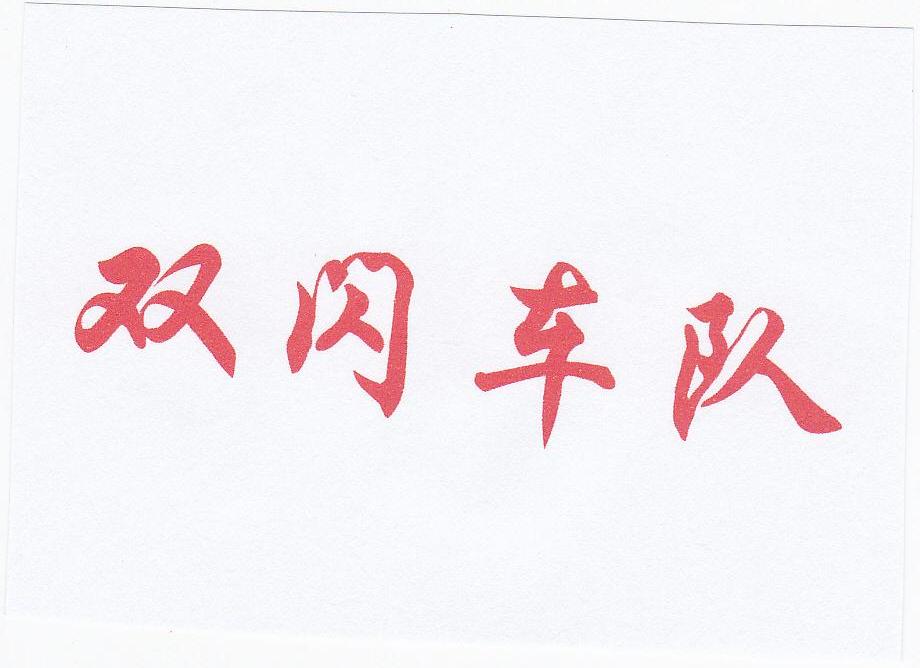 双闪车队